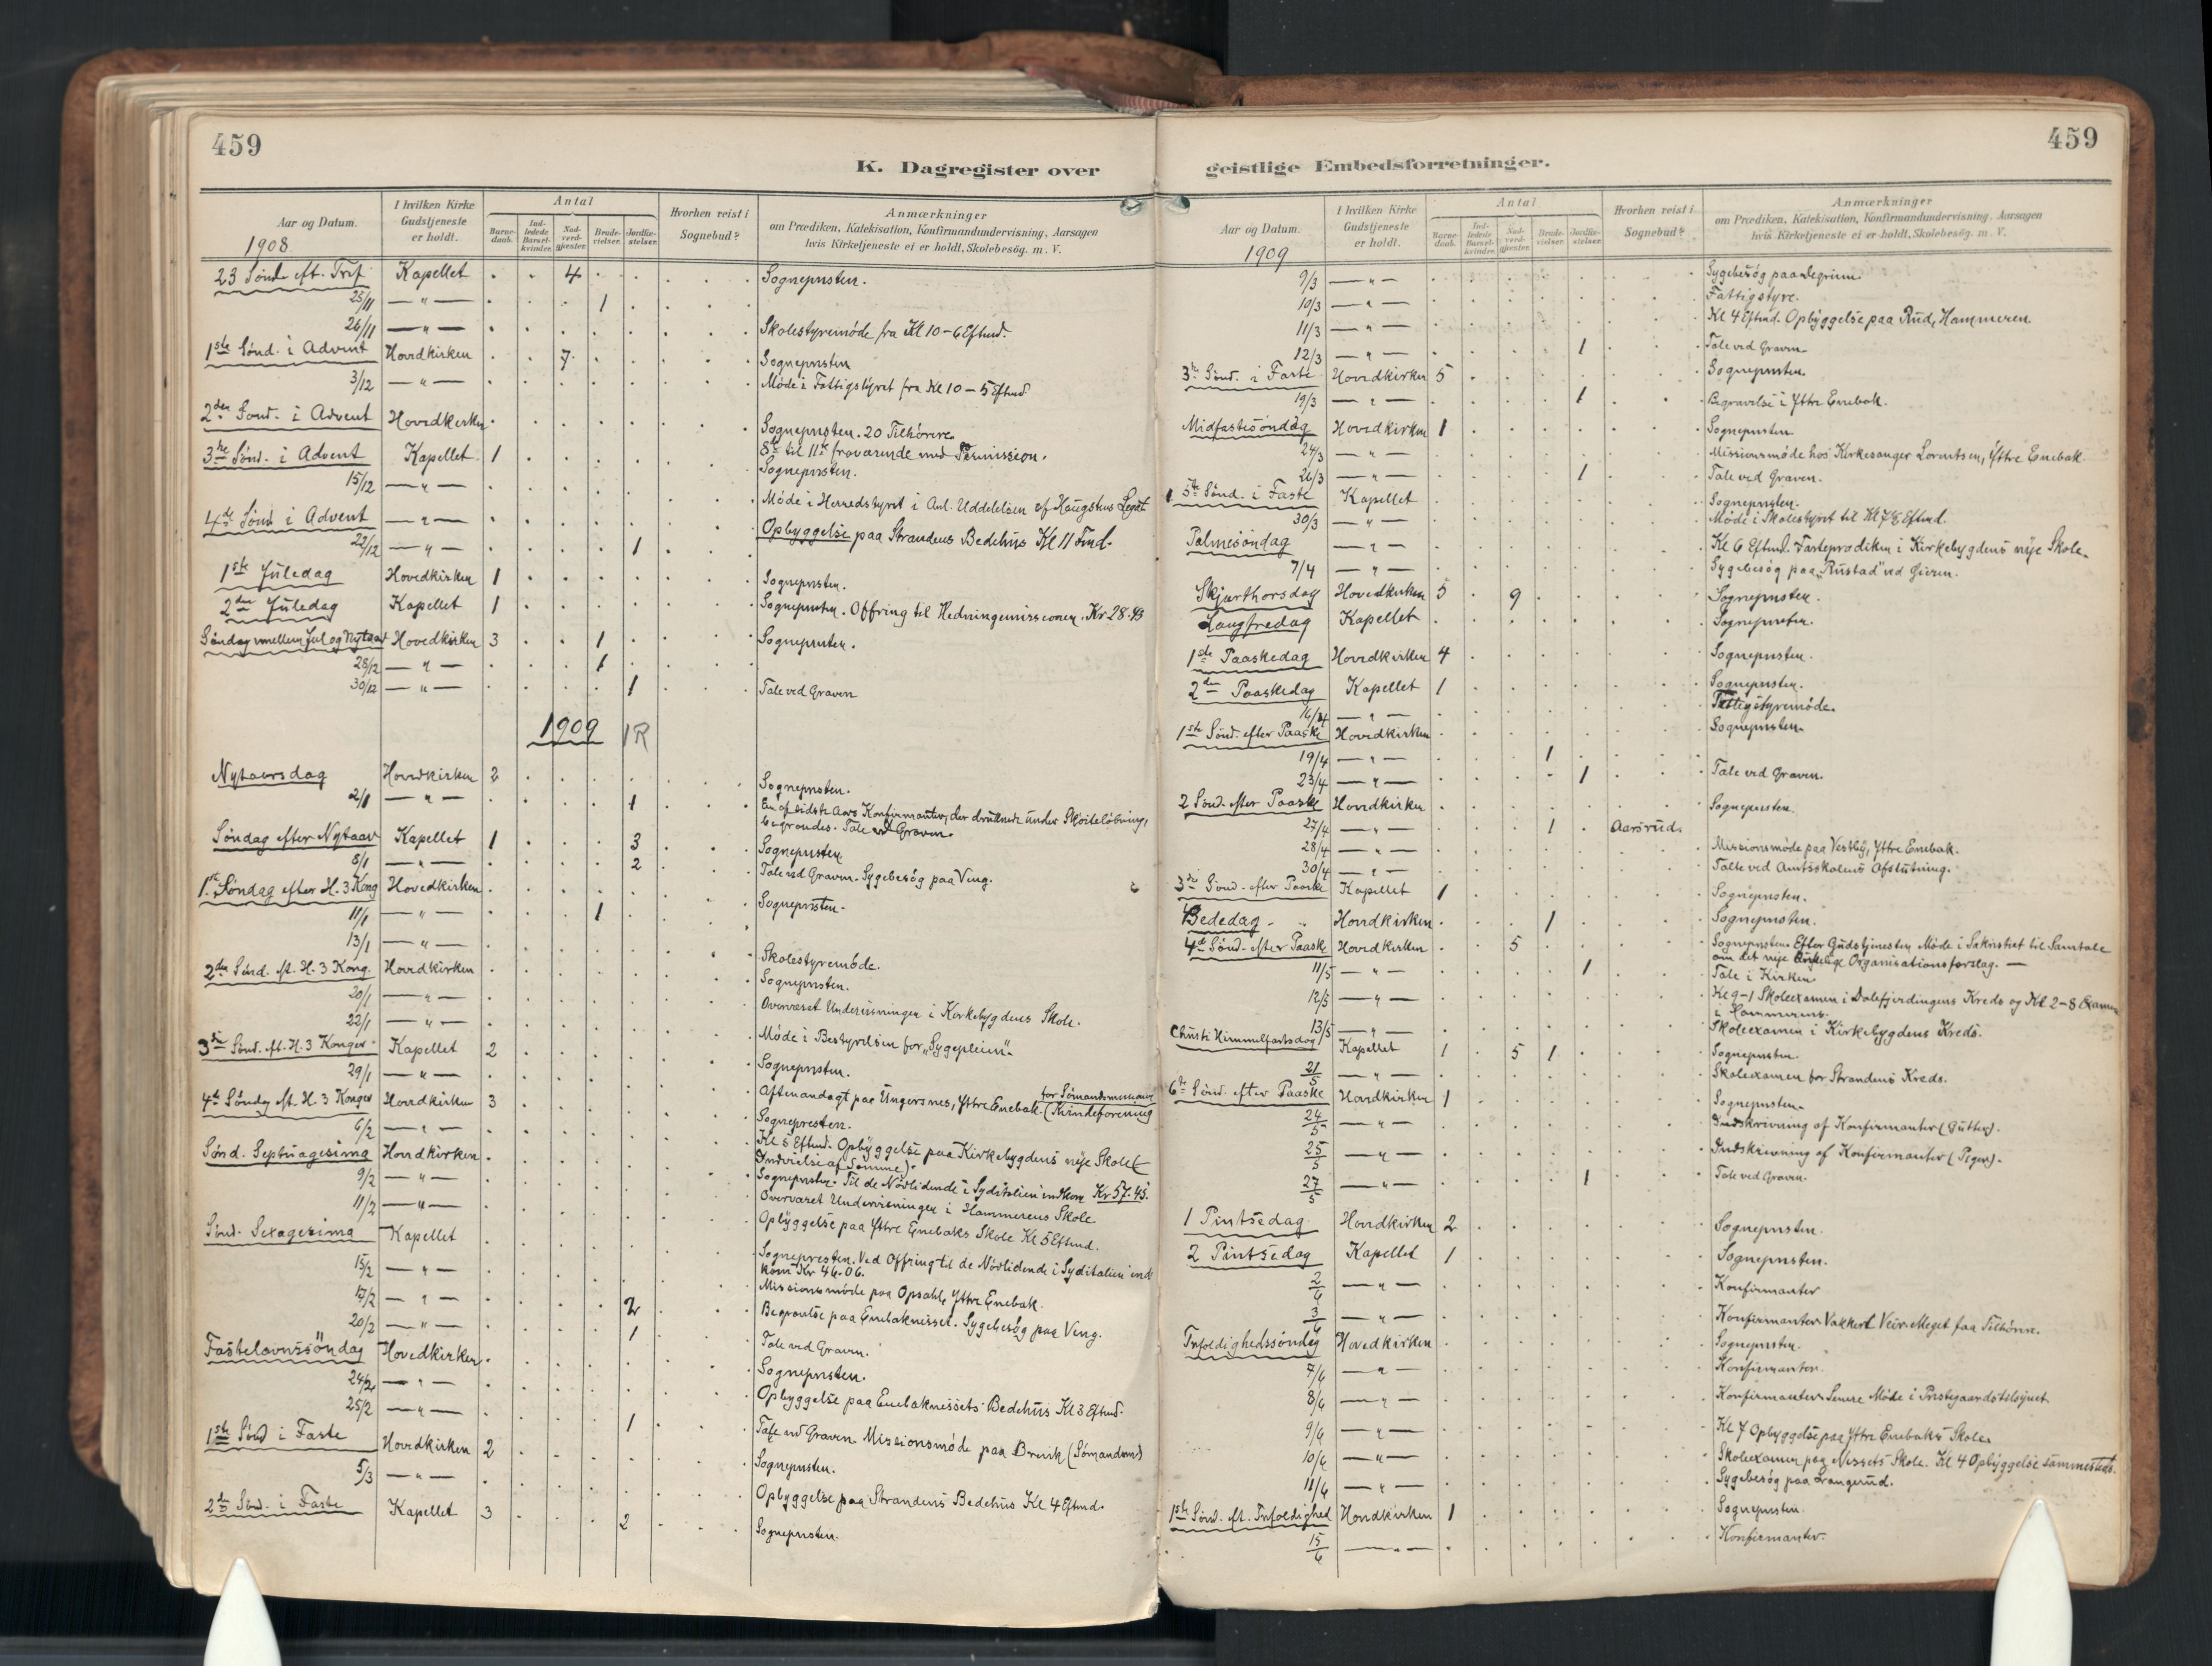 459
K. Dagregister over
Aar og Datum.
I hvilken Kirke Gudstjeneste er holdt.
Antal
Barne-daab.
Ind-ledede Barsel-kvinder.
Nad-verd-gjester.
Brude-vielser.
Jordfæ-stelser.
Hvorhen reist i Sognebud?
Anmærkninger
om Prædiken, Katekisation, Konfirmandundervisning, Aarsagen
hvis Kirketjeneste ei er holdt, Skolebesög. m. V.
1908
23 Sönd. eft. Tref. Kapellet 4 Sognepresten.
25/11 — " — 1
26/11 — " — Skolestyremöde fra Kl 10-6 Eftmd.
1ste Sönd. i Advent Hovedkirken 7 Sognepresten
3/12 — " — Möde i Fattigstyret fra Kl 10 - 5 Eftmd
2den Sönd. i Advent Hovedkirken Sognepresten. 20 Tilhörere
8de til 11te fraværende med Permission.
3die Sönd. i Advent Kapellet 1 Sognepresten.
15/12 — " — Möde i Herredstyret i Anl. Uddelelsen af Haugshus Legat
4de Sönd i Advent — " — Opbyggelse paa Strandens Bedehus Kl 11 Fmd.
22/12 — " — 1
1ste Juledag Hovedkirken 1 Sognepresten.
2den Juledag Kapellet 1 Sognepresten. Offring til Hedningemissionen. Kr 28.43
Söndag mellem Jul og Nytaar Hovedkirken 3 1 Sognepresten.
28/12 — " — 1
30/12 — " — 1 Tale ved Graven
1909
Nytaarsdag Hovedkirken 2 Sognepresten.
2/1 — " — 1 En af sidste Aars Konfirmanter, der druknede under Sköitelöbning,
begravedes. Tale ved Graven.
Söndag efter Nytaar Kapellet 1 3 Sognepresten.
8/1 — " — 2 Tale ved Graven. Sygebesög paa Veng.
1ste Söndag efter H. 3 Kong Hovedkirken Sognepresten.
11/1 — " — 1
13/1 — " — Skolestyremöde.
2den Sönd. eft. H. 3 Kong. Hovedkirken Sognepresten.
20/1 — " — Overværet Undervisningen i Kirkebygdens Skole.
22/1 — " — Möde i Bestyrelsen for „Sygepleien".
3die Sönd. eft. H. 3 Konger Kapellet 2 Sognepresten.
29/1 — " — Aftenandagt paa Ungersnes, Ytre Enebak (Kvindeforening
for Sömandsmissionen
4de Söndag eft. H. 3 Konger Hovedkirken 3 Sognepresten.
6/2 — " — Kl 5 Eftmd. Opbyggelse paa Kirkebygdens nye Skole (
Indvielse af Samme).
Sönd. Septuagesima Hovedkirken Sognepresten. Til de Nödlidende i Syditalien indkom Kr 57.45.
9/2 — " — Overværet Undervisningen i Hammerens Skole
11/2 — " — Opbyggelse paa Yttre Enebaks Skole Kl 5 Eftmd.
Sönd. Sexagesima Kapellet Sognepresten. Ved Offring til de Nödlidende i Syditalien ind
kom Kr 46.06.
15/2 — " — Missionsmöde paa Opsahl, Yttre Enebak.
17/2 — " — 2 Begravelse paa Enebaknesset. Sygebesög paa Veng.
20/2 — " — 1 Tale ved Graven.
Fastelavnssöndag Hovedkirken Sognepresten.
24/2 — " — Opbyggelse paa Enebaknessets Bedehus Kl 3 Eftmd.
25/2 — " — 1 Tale ved Graven. Missionsmöde paa Brevik (Sömandsm)
1ste Sönd i Faste Hovedkirken 2 Sognepresten.
5/3 — " — Opbyggelse paa Strandens Bedehus Kl 4 Eftmd.
2den Sönd. i Faste Kapellet 3 2 Sognepresten.
459
geistlige Embedsforretninger.
Aar og Datum.
I hvilken Kirke Gudstjeneste er holdt.
Antal
Barne-daab.
Ind-ledede Barsel-kvinder.
Nad-verd-gjester.
Brude-vielser.
Jordfæ-stelser.
Hvorhen reist i Sognebud?
Anmærkninger
om Prædiken, Katekisation, Konfirmandundervisning, Aarsagen
hvis Kirketjeneste ei er holdt, Skolebesög. m. V.
1909
9/3 — " — Sygebesög paa
10/3 — " — Fattigstyre.
11/3 — " — Kl 4 Eftmd. Opbyggelse paa Rud, Hammeren
12/3 — " — 1 Tale ved Graven
3die Sönd. i Faste Hovedkirken 5 Sognepresten.
19/3 — " — 1 Begravelse i Yttre Enebak.
Midfastesöndag Hovedkirken 1 Sognepresten.
24/3 — " — Missionsmöde hos Kirkesanger Lorentsen, Yttre Enebak.
26/3 — " — 1 Tale ved Graven.
5te Sönd. i Faste Kapellet Sognepresten.
30/3 — " — Möde i Skolestyret til Kl 7½ Eftmd.
Palmesöndag — " — Kl 6 Eftmd. Fasteprædiken i Kirkebygdens nye Skole.
7/4 — " — Sygebesög paa „Rustad" ved Gjeren.
Skjærthorsdag Hovedkirken 5 9 Sognepresten.
Langfredag Kapellet Sognepresten.
1ste Paaskedag Hovedkirken 4 Sognepresten.
2den Paaskedag Kapellet 1 Sognepresten.
16/4 — " — Fattigstyremöde.
1ste Sönd. efter Paaske Hovedkirken Sognepresten.
19/4 — " — 1
23/4 — " — 1 Tale ved Graven.
2 Sönd. efter Paaske Hovedkirken Sognepresten.
27/4 — " — 1 Aarsrud.
28/4 — " — Missionsmöde paa Vestby, Yttre Enebak.
30/4 — " — Talte ved Amtsskolens Afslutning.
3die Sönd. efter Paaske Kapellet 1 Sognepresten.
Bededag Hovedkirken 1 Sognepresten.
4de Sönd. efter Paask Hovedkirken 5 Sognepresten. Efter Gudstjenesten Möde i Sakristiet til Samtale
om det nye kirkelige Organisationsforslag. —
11/5 — " — 1 Tale i Kirken
12/5 — " — Kl 9-1 Skoleexamen i Dalefjerdingens Kreds og Kl 2-8 Examen
i Hammerens.
13/5 — " — Skoleexamen i Kirkebygdens Kreds.
Christi Himmelfartsdag Kapellet 1 5 1 Sognepresten
21/5 — " — Skoleexamen for Strandens Kreds.
6te Sönd. efter Paaske Hovedkirken 1 Sognepresten.
24/5 — " — Indskrivning af Konfirmanter (Gutter).
25/5 — " — Indskrivning af Konfirmanter (Piger).
27/5 — " — 1 Tale ved Graven.
1 Pintsedag Hovedkirken 2 Sognepresten.
2 Pintsedag Kapellet 1 Sognepresten.
2/6 — " — Konfirmanter
3/6 — " — Konfirmanter. Vakkert Veir. Meget faa Tilhörere.
Trefoldighedssöndag Hovedkirken Sognepresten.
7/6 — " — Konfirmanter.
8/6 — " — Konfirmanter. Senere Möde i Prestegaardstilsynet
9/6 — " — Kl 7 Opbyggelse paa Yttre Enebaks Skole.
10/6 — " — Skoleexamen paa Nessets Skole. Kl 4 Opbyggelse sammesteds.
11/6 — " — Sygebesög paa Langerud.
1ste Sönd. eft. Trefoldighed Hovedkirken 1 Sognepresten.
15/6 — " — Konfirmanter.